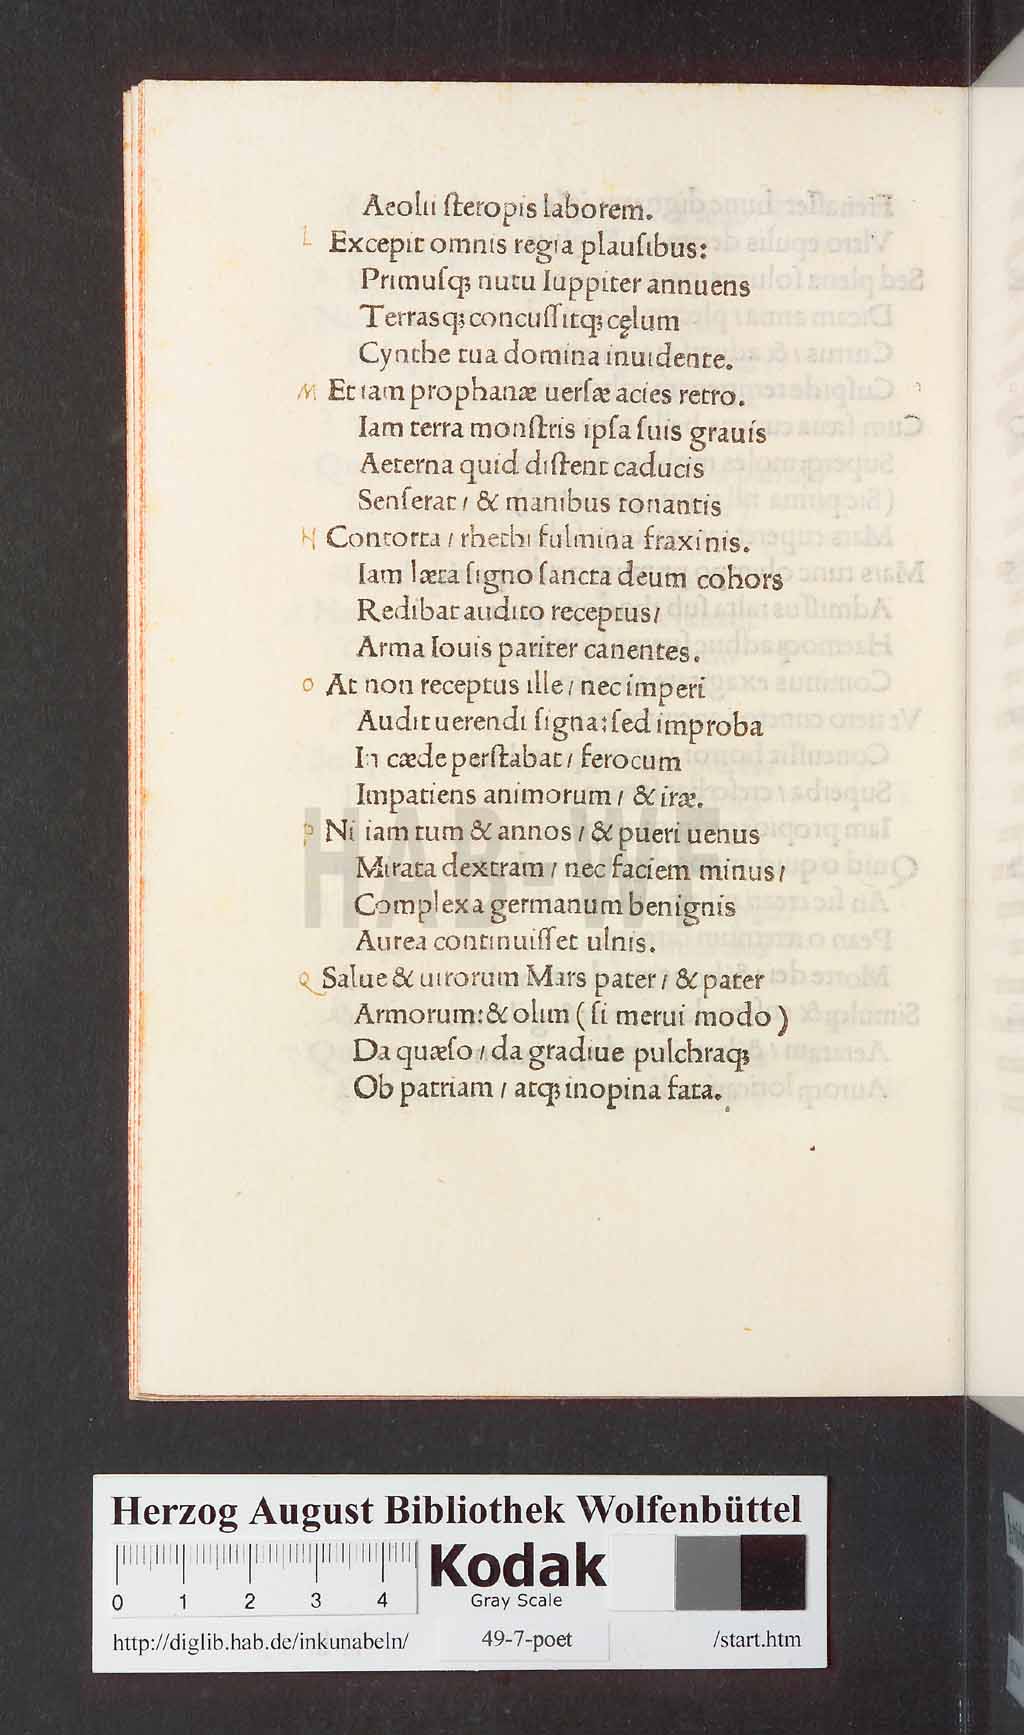 Aeolii ſteropis laborem.
L Excepit omnis regia plauſibus:
Primuſqꝫ nutu Iuppiter annuens
Terrasqꝫ concuſſitqꝫ cęlum
Cynthe tua domina inuidente.
M Et iam prophanæ uerſæ acies retro.
Iam terra monſtris ipſa ſuis grauis
Aeterna quid diſtent caducis
Senſerat / & manibus tonantis
N Contorta / rhethi fulmina fraxinis.
Iam læta ſigno ſancta deum cohors
Redibat audito receptus/
Arma Iouis pariter canentes.
O At non receptus ille / nec imperi
Audit uerendi ſigna: ſed improba
In cæde perſtabat / ferocum
Impatiens animorum / & iræ.
P Ni iam tum & annos / & pueri uenus
Mirata dextram / nec faciem minus/
Complexa germanum benignis
Aurea continuiſſet ulnis.
Q Salue & uirorum Mars pater / & pater
Armorum: & olim ( ſi merui modo )
Da quæſo / da gradiue pulchraqꝫ
Ob patriam / atqꝫ inopina fata.
HAB-WF
Herzog August Bibliothek Wolfenbüttel
0 1 2 3 4
Kodak
Gray Scale
http://diglib.hab.de/inkunabeln/ 49-7-poet /start.htm